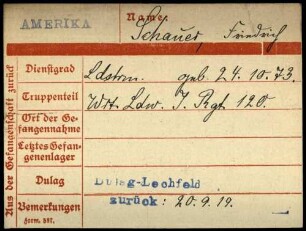 AMERIKA
Name:
Schauer, Friedrich
Aus der Gefangenschaft zurück
Dienstgrad Ldstrm. geb 24.10.73.
Truppenteil Wrt. Ldw. I. Rgt 120.
Ort der Ge-
fangennahme
Letztes Gefan-
genenlager
Dulag Dulag-Lechfeld
Bemerkungen zurück: 20.9.19.